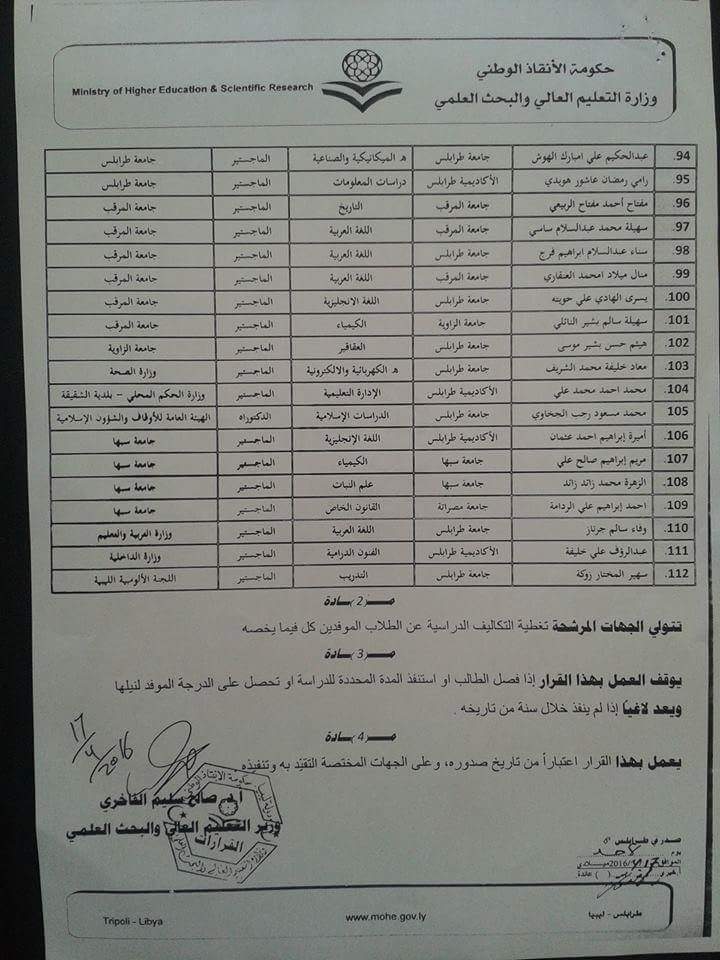 حكومة الأنقاذ الوطني
وزارة التعليم العالي والبحث العلمي
Ministry of Higher Education & Scientific Research
94. عبدالحكيم علي امبارك الهوش جامعة طرابلس ه الميكانيكية والصناعية الماجستير جامعة طرابلس
95. رامي رمضان عاشور هويدي الأكاديمية طرابلس دراسات المعلومات الماجستير جامعة طرابلس
96. مفتاح أحمد مفتاح الربيعي جامعة المرقب التاريخ الماجستير جامعة المرقب
97. سهيلة محمد عبدالسلام ساسي جامعة المرقب اللغة العربية الماجستير جامعة المرقب
98. سناء عبدالسلام ابراهيم فرج جامعة طرابلس اللغة العربية الماجستير جامعة المرقب
99. منال ميلاد امحمد العنقاري جامعة المرقب اللغة العربية الماجستير جامعة المرقب
100. يسرى الهادي علي حويته جامعة طرابلس اللغة الانجليزية الماجستير جامعة المرقب
101. سهيلة سالم بشير النائلي جامعة الزاوية الكيمياء الماجستير جامعة المرقب
102. هيثم حسن بشير موسى جامعة طرابلس العقاقير الماجستير جامعة الزاوية
103. معاد خليفة محمد الشريف جامعة طرابلس ه الكهربائية والالكترونية الماجستير وزارة الصحة
104. محمد احمد محمد علي الأكاديمية طرابلس الإدارة التعليمية الماجستير وزارة الحكم المحلي – بلدية الشقيقة
105 محمد مسعود رجب الجخاوي جامعة طرابلس الدراسات الإسلامية الدكتوراه الهيئة العامة للأوقاف والشؤون الإسلامية
106. أميرة إبراهيم احمد عثمان الأكاديمية طرابلس اللغة الإنجليزية الماجستير جامعة سبها
107. مريم إبراهيم صالح علي جامعة سبها الكيمياء الماجستير جامعة سبها
108. الزهرة محمد زائد زائد جامعة سبها علم النبات الماجستير جامعة سبها
109. احمد إبراهيم علي الردامة جامعة مصراتة القانون الخاص الماجستير جامعة سبها
110. وفاء سالم جرناز جامعة طرابلس اللغة العربية الماجستير وزارة التربية والتعليم
111. عبدالرؤف علي خليفة الأكاديمية طرابلس الفنون الدرامية الماجستير وزارة الداخلية
112. سهير المختار زوكة جامعة طرابلس التدريب الماجستير اللجنة الألومبية الليبية
مــادة 2
تتولي الجهات المرشحة تغطية التكاليف الدراسية عن الطلاب الموفدين كل فيما يخصه
مــادة 3
يوقف العمل بهذا القرار إذا فصل الطالب او استنفذ المدة المحددة للدراسة او تحصل على الدرجة الموفد لنيلها
ويعد لاغياً إذا لم ينفذ خلال سنة من تاريخه .
مــادة 4
يعمل بهذا القرار اعتباراً من تاريخ صدوره، وعلى الجهات المختصة التقيد به وتنفيذه
17/4/2016
أ.د. صالح سليم الفاخري
وزير التعليم العالي والبحث العلمي
القرارات
صدر في طرابلس
يوم الاحد
الموافق 2016 ميلادي
Tripoli - Libya
www.mohe.gov.ly
طرابلس - ليبيا